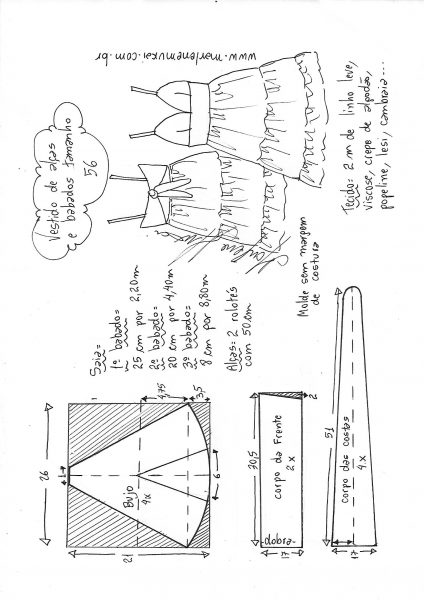 www.marlenemukai.com.br
Vestido de alças
e babados tamanho
56
Tecido: 2 m de linho leve,
viscose, crepe de algodão,
popeline, lesi, cambraia...
Saia=
1º babado=
25 cm por 2,20m
2º babado=
20 cm por 4,40m
3º babado=
8 cm por 8,80m
Alças: 2 rolotês
com 50 cm
Molde sem margem
de costura
26
1
1
4,75
3,5
Bujo
4x
6
21
30,5
2
corpo da frente
2x
dobra
17
51
corpo das costas
4x
17